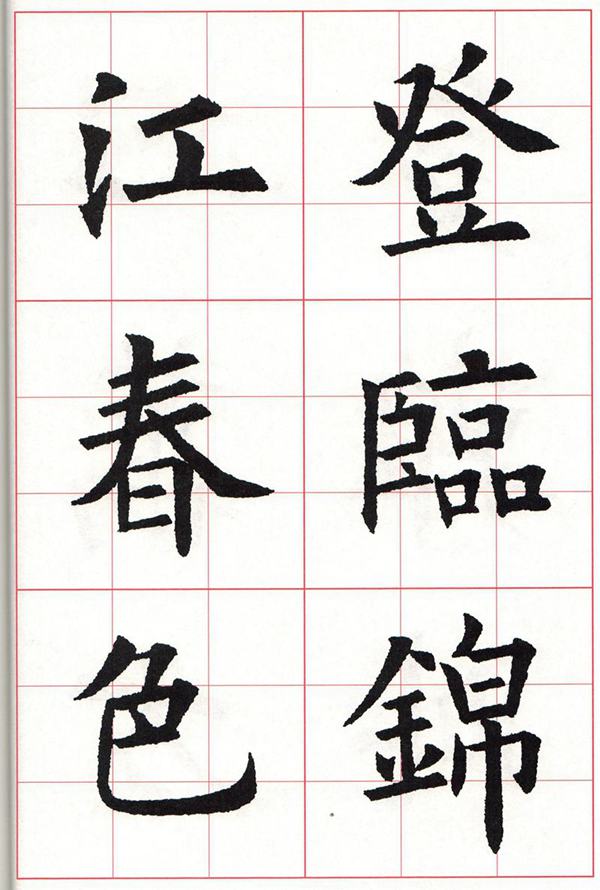 登臨錦
江春色